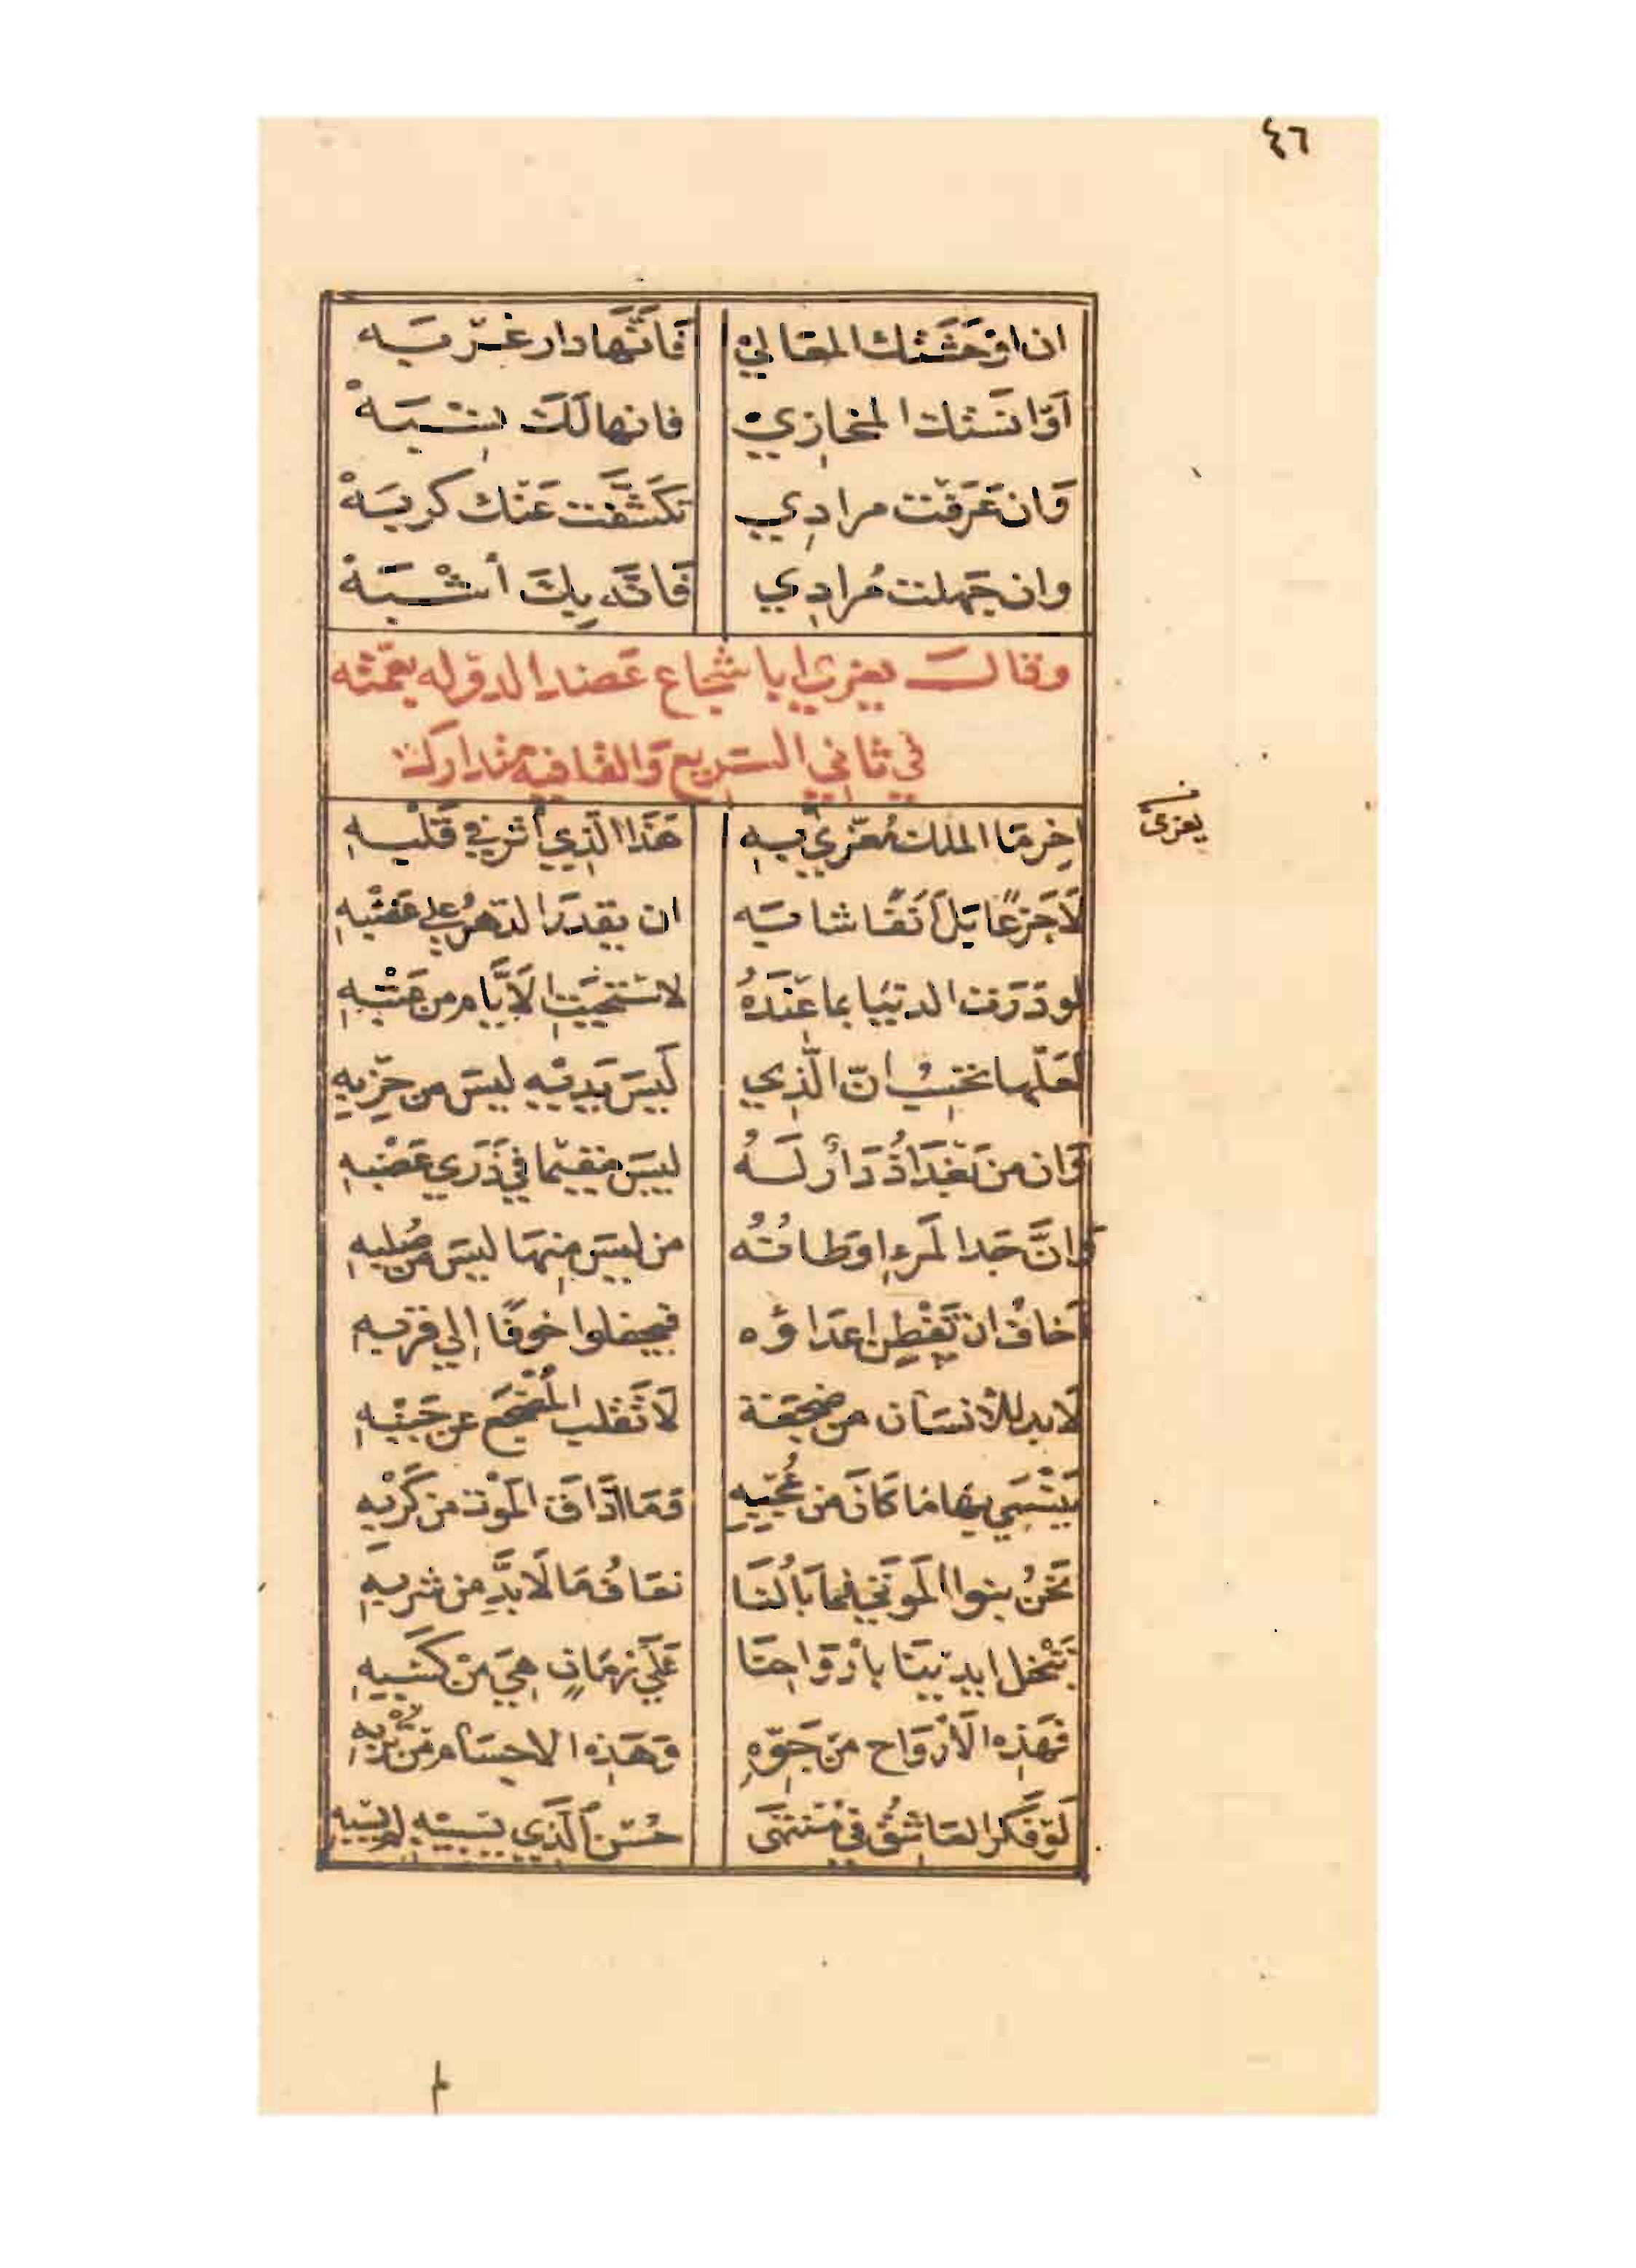 ٤٦
ان اوْحَشَتْك المعَاليْ فَانَّهَا دار غُرْبَه
اَوْ انَسَتْك المخازِيْ فانها لَكَ نِسْبَهْ
وَان عَرَفْت مرادِي تَكَشَّفَت عَنْك كربَهْ
وان جَهِلت مُرادِي فَانَّه بِكَ أشْبَهْ
وقال يعزي ابا شجاع عَضد الدوله بعمّته
في ثاني السَرِيع وَالقافيه متدارك
يعزى
اخِر مَا الملك مُعَزّي بِهِ هَذَا الَّذِي أثر في قَلْبِهِ
لَا جَزعًا بَل أنَفًا شابَه ان يقدَرَ الدهرُ علي غَصْبِهِ
لو دَرَت الدنيَا بما عِنْدَهُ لاسْتَحْيَتِ الَايَّام من عَتْبِهِ
لَعَلّها تحْسِبُ انّ الَّذِي لَيسَ لَدَيْهِ ليسَ من حِزْبِهِ
وَان من بَغْدَاذُ دَارٌ لَهُ ليسَ مقيمًا في ذَرَي عَضْبِهِ
وَانَّ جَد المَرءِ اوَطانُهُ من ليسَ مِنهَا ليسَ من صُلبِهِ
اَخافُ ان تَفْطِن اعدَاؤه فيجفلوا خوفًا إلي قربِهِ
لَا بد للأنسَان من ضجعَة لَا تَقلب المُضْجَع عن جَنْبِهِ
يَنْسَي بها مَا كَانَ من عُجْبِهِ وَمَا اَذَاقَ المَوْت من كَرْبِهِ
نَحْنُ بنوا المَوتَي فما بَالُنَا نعَافُ مَا لَا بدَّ مِن شربِهِ
تَبْخل ايدِينَا بأرْوَاحِنَا عَلَي زمَانٍ هِيَ مِنْ كَسْبِهِ
فَهَذِه الَأرْوَاح مِن جَوّهِ وَهَذِه الاجسَام من تُرْبِهِ
لَوْ فَكر العَاشِقُ في مُنْتَهَى حُسْن الَّذِي يَسْبِيْهِ لم يَسْبِهِ